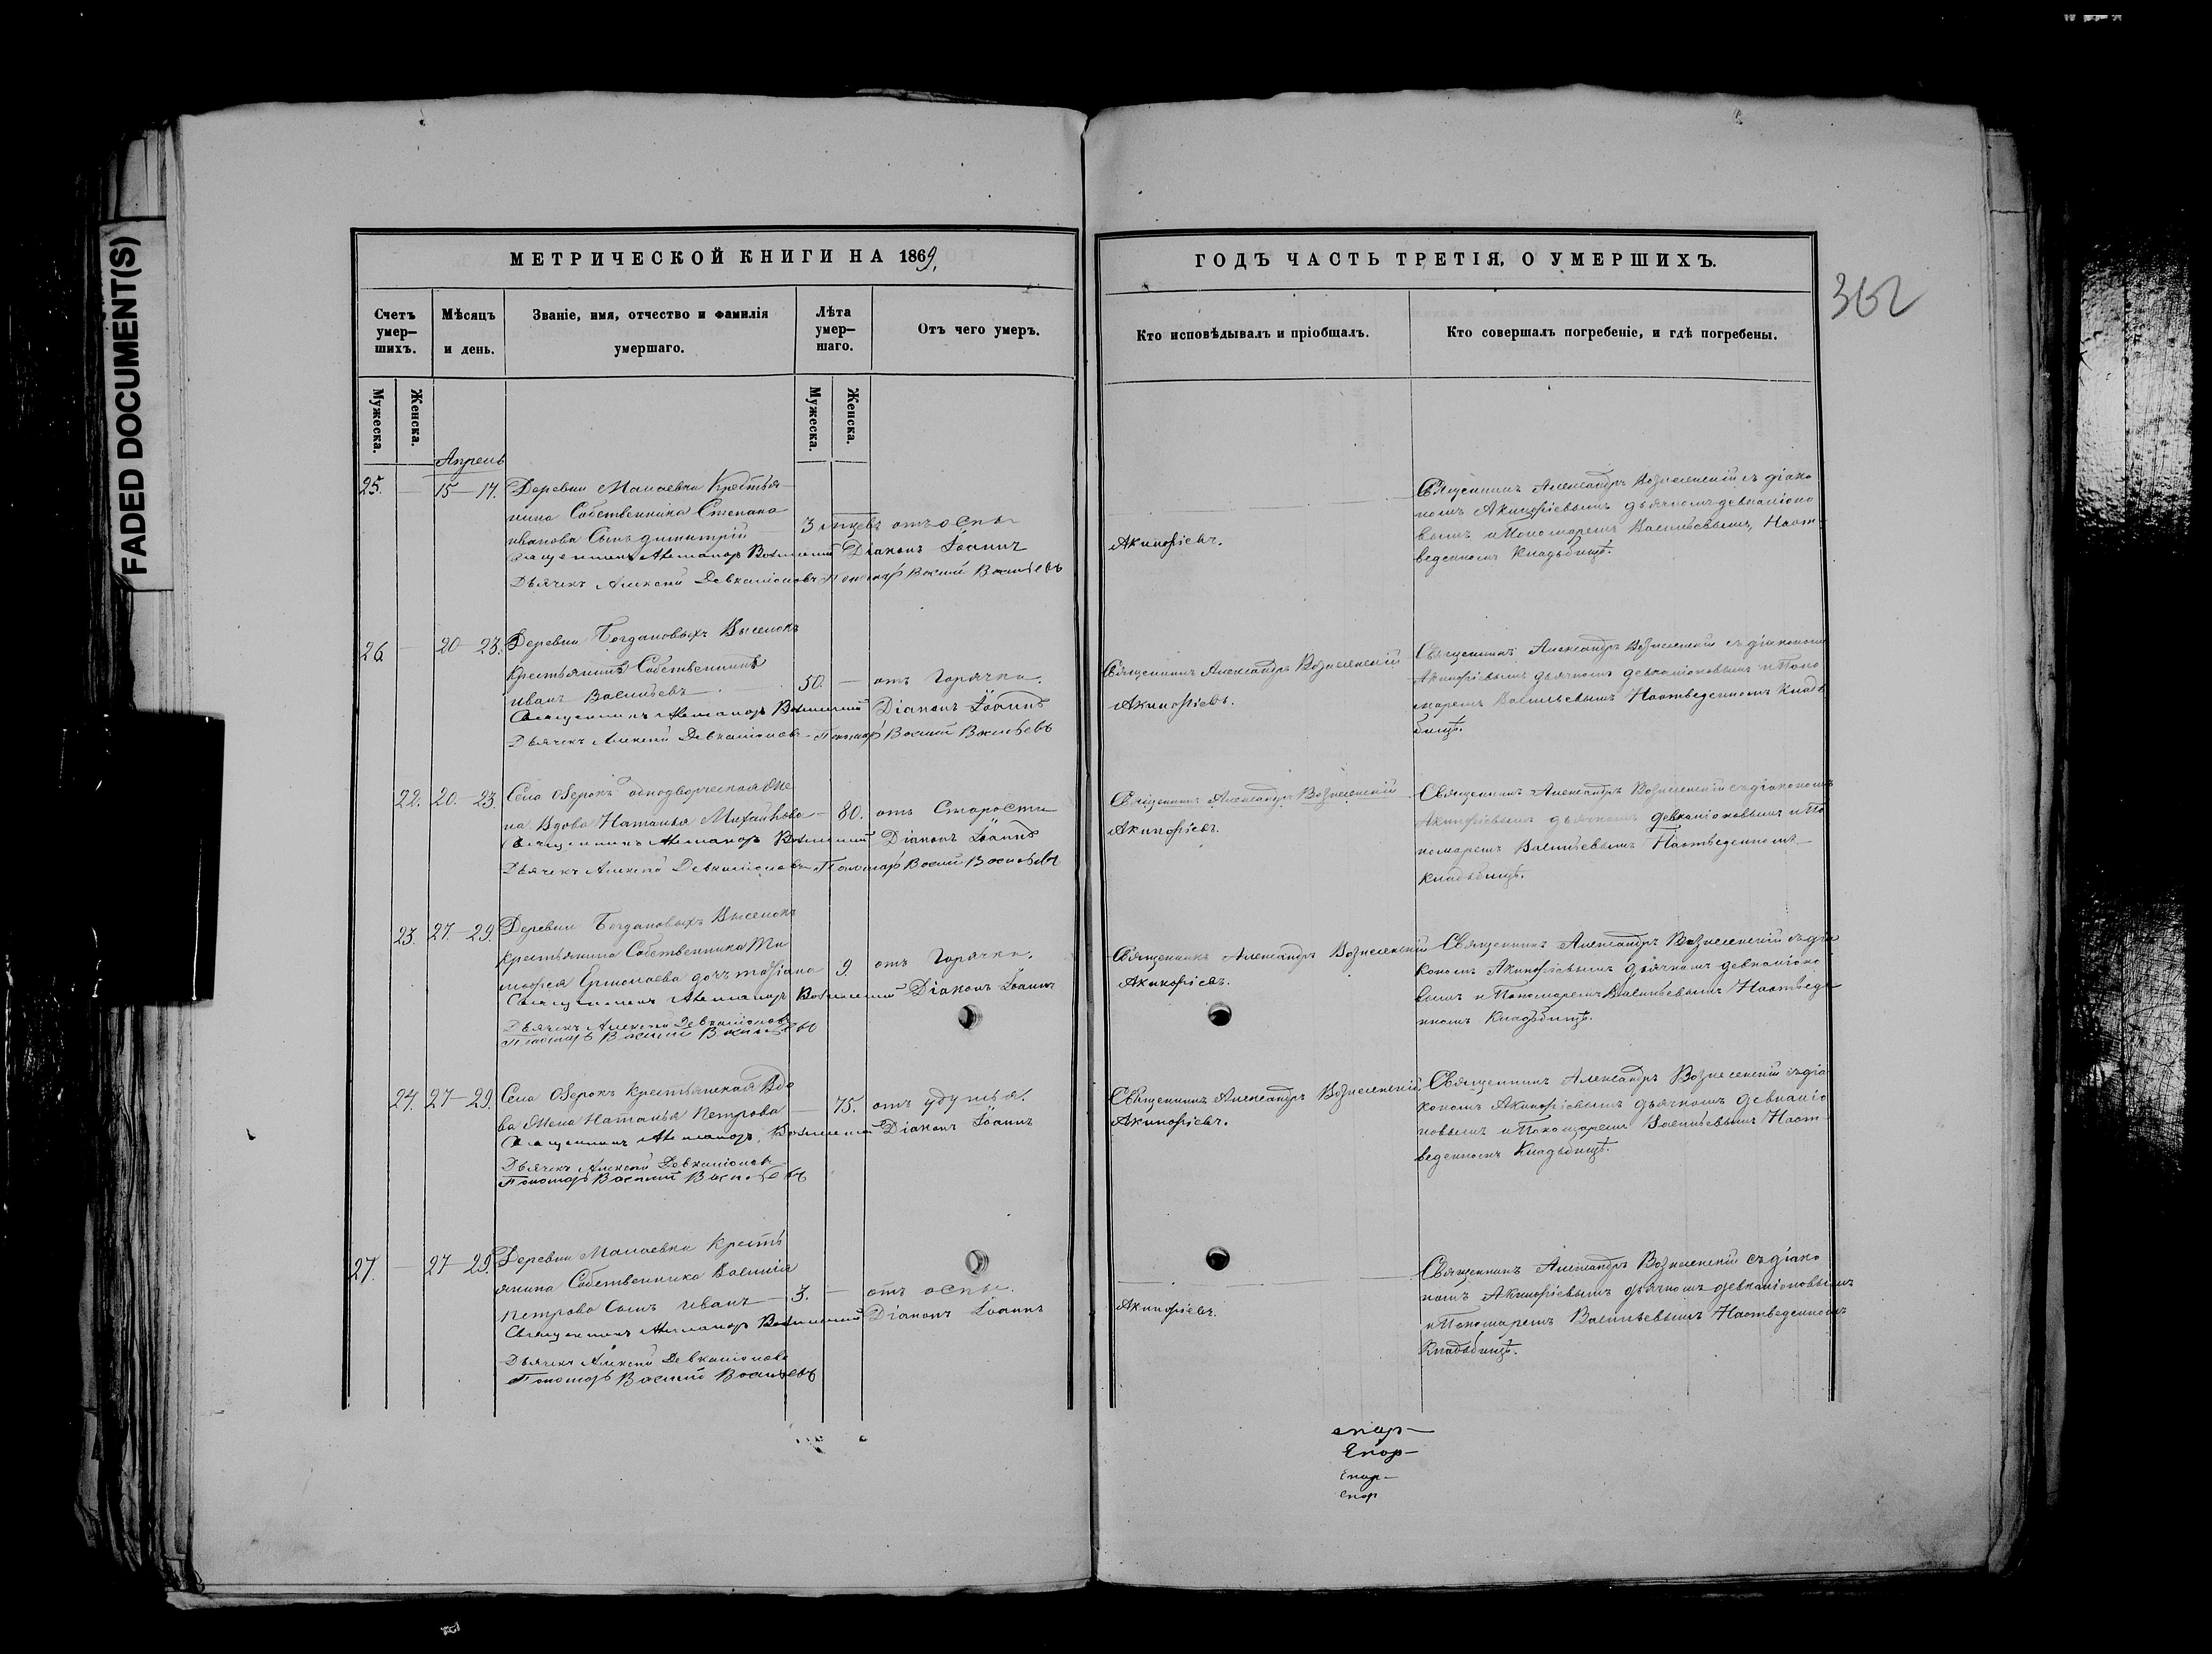 FADED DOCUMENT(S)
МЕТРИЧЕСКОЙ КНИГИ НА 1869,
Счетъ умер-шихъ.
Мѣсяцъ и день.
Званіе, имя, отчество и фамилія умершаго.
Лѣта умер-шаго.
Отъ чего умеръ.
Мужеска.
Женска.
Мужеска.
Женска.
Апрель
25. — 15—17. Деревни Малаевки Крестья-
нина Собственника Степана
иванова Сынъ димитрій 3 мцевъ отъ оспы
Священникъ Александръ Вознесенскій Діаконъ Іоаннъ
Дьячекъ Алексей Девкаліоновъ Пономарь Василій Васильевъ
26 — 20—23. Деревни Богдановыхъ Выселокъ
Крестьянинъ Собственникъ
иванъ Васильевъ 50. — отъ Горячки.
Священникъ Александръ Вознесенскій Діаконъ Іоаннъ
Дьячекъ Алексей Девкаліоновъ Пономарь Василій Васильевъ
22. 20.—23. Села Озерокъ однодворческая Же
на Вдова Наталья Михайлова — 80. отъ Старости
Священникъ Александръ Вознесенскій Діаконъ Іоаннъ
Дьячекъ Алексей Девкаліоновъ Пономарь Василій Васильевъ
23. 27.—29. Деревни Богдановыхъ Выселокъ
Крестьянина Собственника Ти
мофея Ермолаева дочь 9. отъ Горячки.
Священникъ Александръ Вознесенскій Діаконъ Іоаннъ
Дьячекъ Алексей Девкаліоновъ
Пономарь Василій Васильевъ
24. 27—29. Села Озерокъ Крестьянская Вдо
ва Жена Наталья Петрова — 75. отъ удушья.
Священникъ Александръ Вознесенскій Діаконъ Іоаннъ
Дьячекъ Алексей Девкаліоновъ
Пономарь Василій Васильевъ
27. — 27—29. Деревни Малаевки Кресть
янина Собственника Василія
Петрова Сынъ иванъ — 3. — отъ оспы.
Священникъ Александръ Вознесенскій Діаконъ Іоаннъ
Дьячекъ Алексей Девкаліоновъ
Пономарь Василій Васильевъ
ГОДЪ ЧАСТЬ ТРЕТІЯ, О УМЕРШИХЪ.
362
Кто исповѣдывалъ и пріобщалъ.
Кто совершалъ погребеніе, и гдѣ погребены.
Акинфіевъ.
Священникъ Александръ Вознесенскій съ діако
номъ Акинфіевымъ дьячкомъ девкаліоно
вымъ и Пономаремъ Васильевымъ, На от-
веденномъ Кладьбищѣ.
Священникъ Александръ Вознесенскій
Акинфіевъ.
Священникъ Александръ Вознесенскій съ діакономъ
Акинфіевымъ дьячкомъ девкаліоновымъ и Поно
маремъ Васильевымъ На отведенномъ Кладь
бищѣ.
Священникъ Александръ Вознесенскій
Акинфіевъ.
Священникъ Александръ Вознесенскій съ діакономъ
Акинфіевымъ дьячкомъ девкаліоновымъ и По
номаремъ Васильевымъ На отведенномъ
Кладьбищѣ.
Священникъ Александръ Вознесенскій
Акинфіевъ.
Священникъ Александръ Вознесенскій съ діа
кономъ Акинфіевымъ дьячкомъ девкаліоно
вымъ и Пономаремъ Васильевымъ На отведе
нномъ Кладьбищѣ.
Священникъ Александръ Вознесенскій
Акинфіевъ.
Священникъ Александръ Вознесенскій съ діа
кономъ Акинфіевымъ дьячкомъ девкаліо
новымъ и Пономаремъ Васильевымъ На от-
веденномъ Кладьбищѣ.
Акинфіевъ.
Священникъ Александръ Вознесенскій съ діако
номъ Акинфіевымъ дьячкомъ девкаліоновымъ
и Пономаремъ Васильевымъ На отведенномъ
Кладьбищѣ.